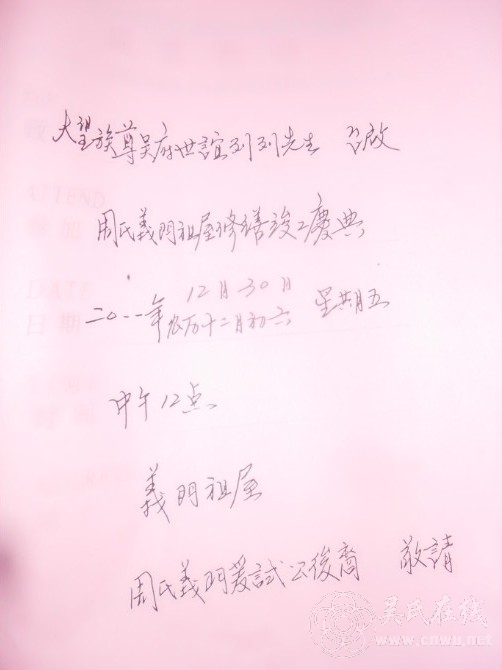 大望族尊吴府世誼列列先生 台啟
周氏義門祖屋修繕竣工慶典
二〇一一年 12月30日 星期五
农历十二月初六
中午12点
義門祖屋
周氏義門爰試公後裔 敬請
ATTEND
DATE
日期
吴氏在线
www.cnwu.net